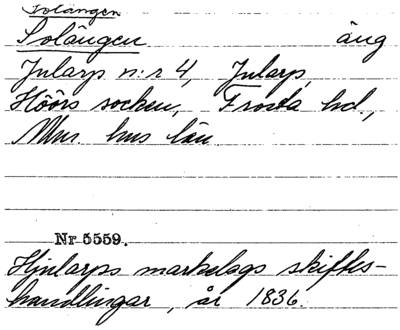 Solängen
Solängen äng
Jularp n:r 4, Jularp,
Höörs socken, Frosta hd.,
Mlm. hus län
Nr 5559.
Hjularps markelags skiftes-
handlingar, år 1836.